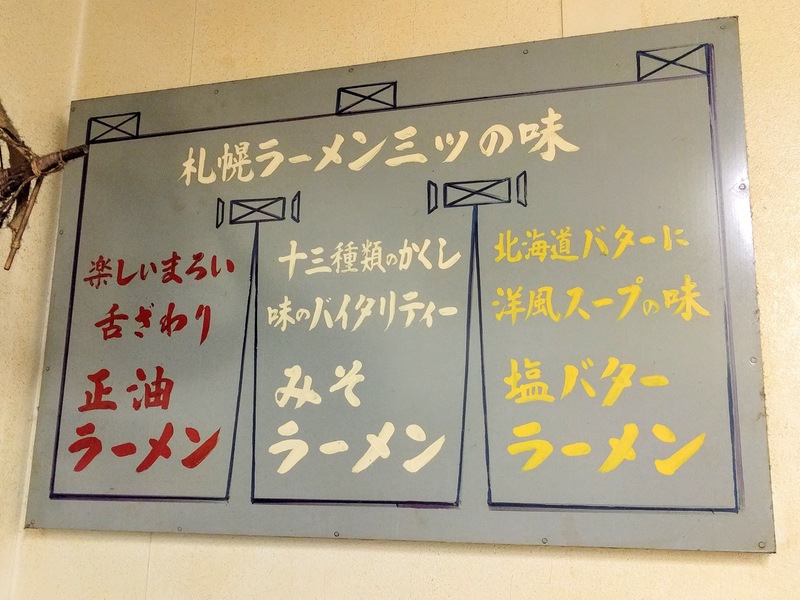 札幌ラーメン三ツの味
楽しいまろい
舌ざわり
正油
ラーメン
十三種類のかくし
味のバイタリティー
みそ
ラーメン
北海道バターに
洋風スープの味
塩バター
ラーメン